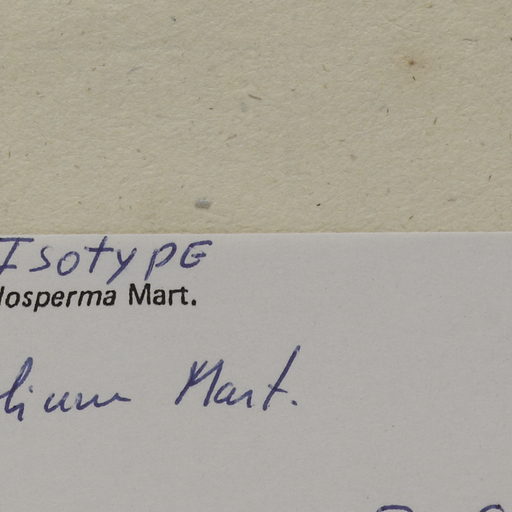 Isotype
losperma Mart.
lium Mart.